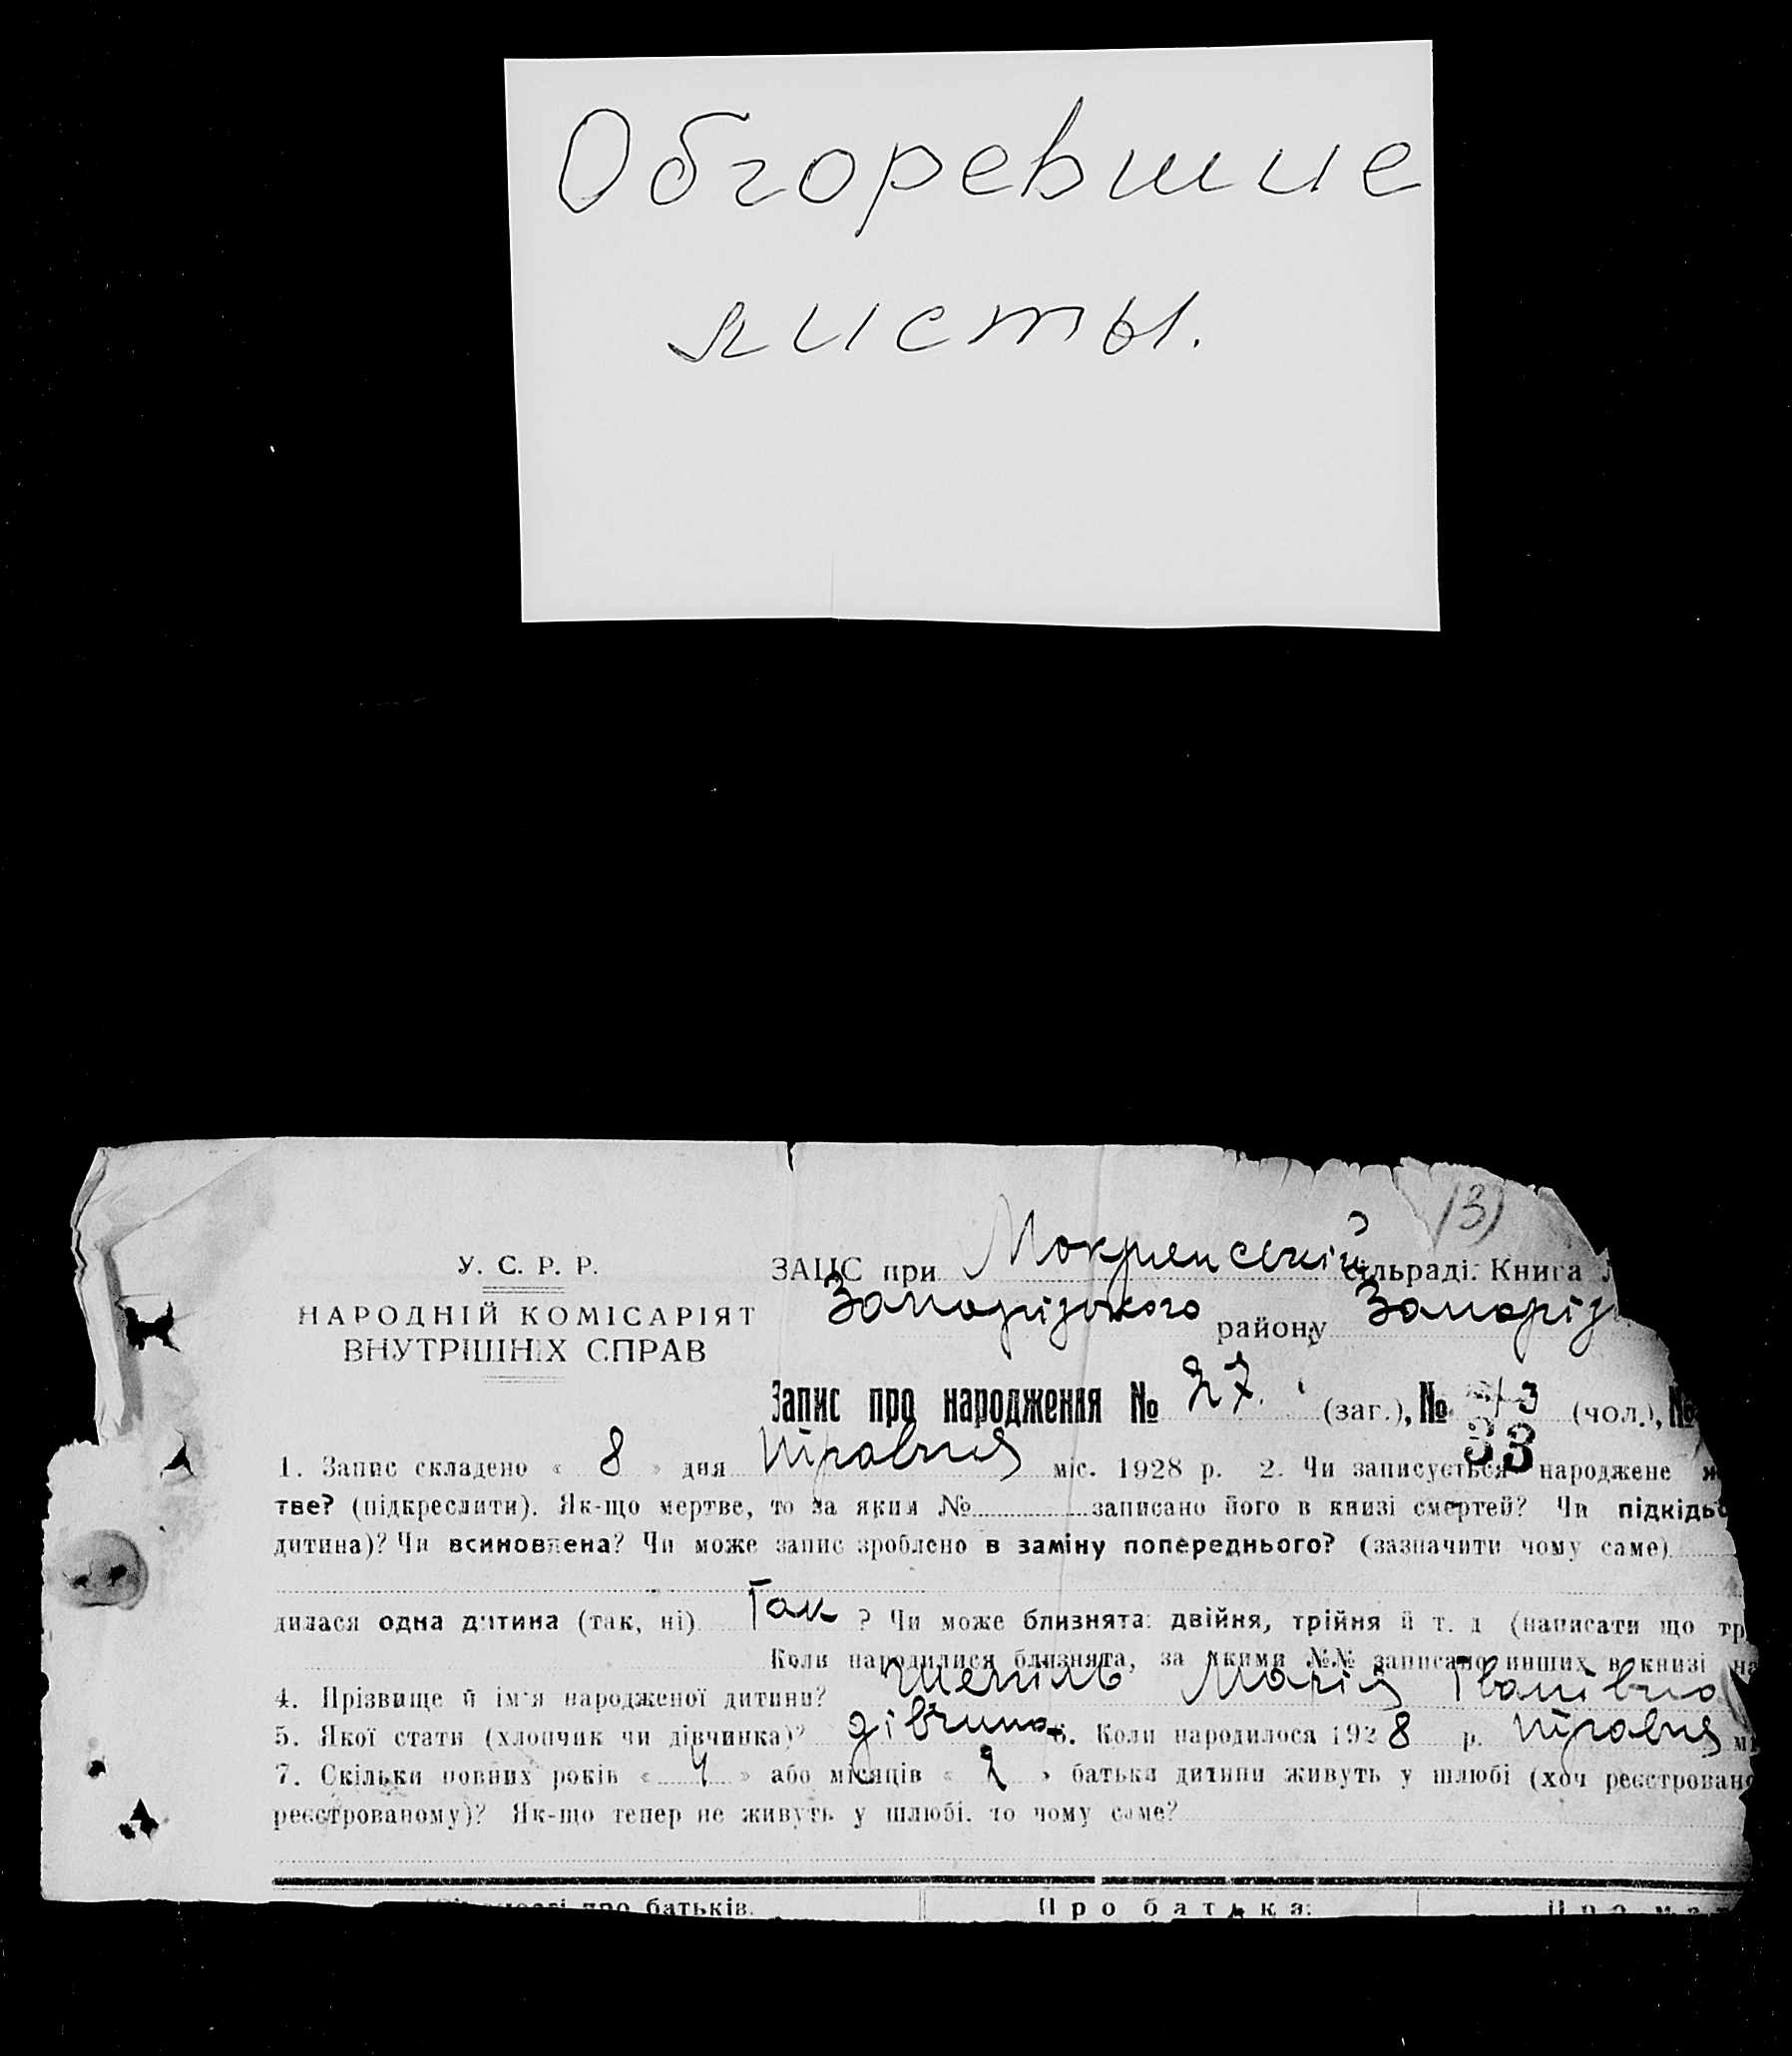 Обгоревшие
листы.
13)
У. С. Р. Р.
НАРОДНІЙ КОМІСАРІЯТ
ВНУТРІШНІХ СПРАВ
ЗАЦС при Мокрянській сільраді. Книга
Запорізького району Запоріз
Запис про народження № 27. (заг.), № 13 (чол.), №
33
1. Запис складено « 8 » дня травня міс. 1928 р. 2. Чи записується народжене
тве? (підкреслити). Як-що мертве, то за яким № записано його в книзі смертей? Чи підкідь
дитина)? Чи всиновлена? Чи може запис зроблено в заміну попереднього? (зазначити чому саме)
дилася одна дитина (так, ні) Так ? Чи може близнята: двійня, трійня й т. д (написати що тр
Коли народилися близнята, за якими №№ записано инших в книзі на
4. Прізвище й ім'я народженої дитини? Марія Іванівна
5. Якої стати (хлопчик чи дівчинка)? дівчина 6. Коли народилося 1928 р. травня мі
7. Скільки повних років « 4 » або місяців « 2 » батьки дитини живуть у шлюбі (хоч реєстровано
реєстрованому)? Як-що тепер не живуть у шлюбі, то чому саме?
про батьків. Про батька: